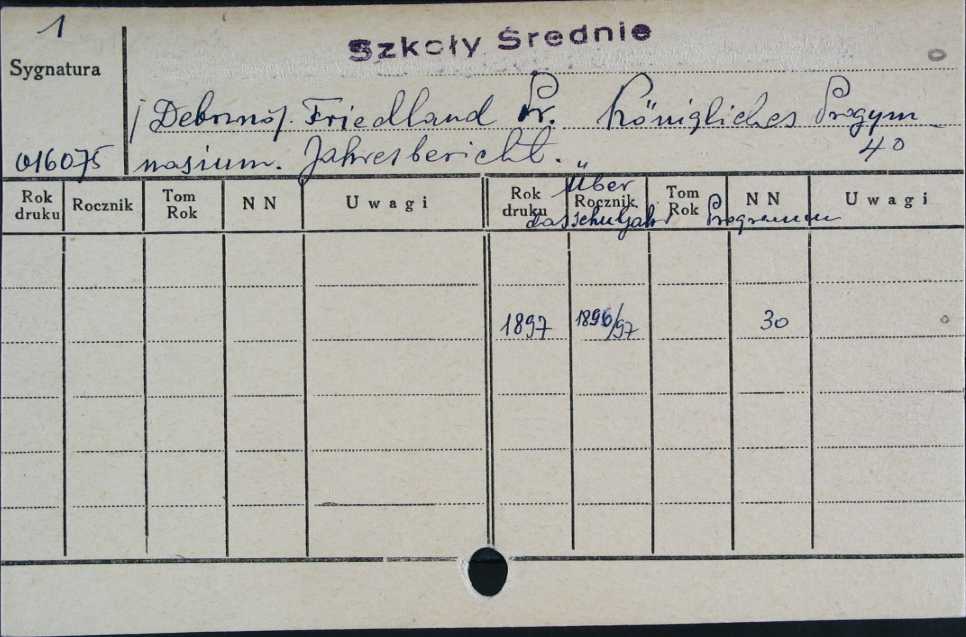 1
Szkoły Średnie
Sygnatura
/ Debrzno/. Friedland Pr. Königliches Progym-
016075 nasium. Jahresbericht. 4°
Über
das Schuljahr Programm
Rok druku Rocznik Tom Rok NN Uwagi Rok druku Rocznik Tom Rok NN Uwagi
1897 1896/97 30